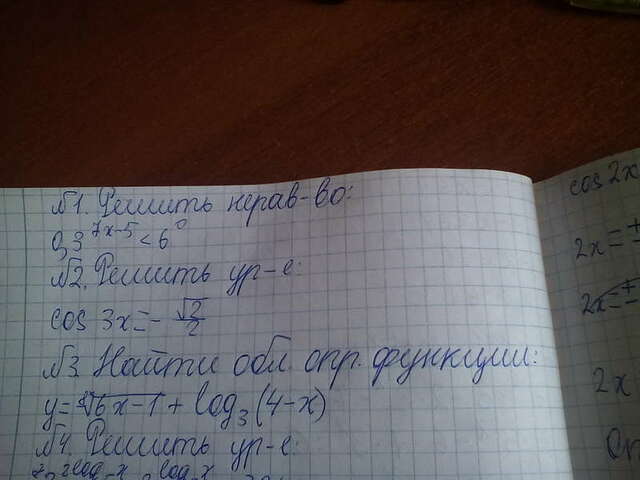 №1. Решить нерав-во:
0,3^(7x-5) < 6^0
№2. Решить ур-е:
cos 3x = - √2/2
№3. Найти обл. опр. функции:
y = √6x-1 + log₃(4-x)
№4. Решить ур-е:
cos 2x
2x = ±
2x = ±
2x